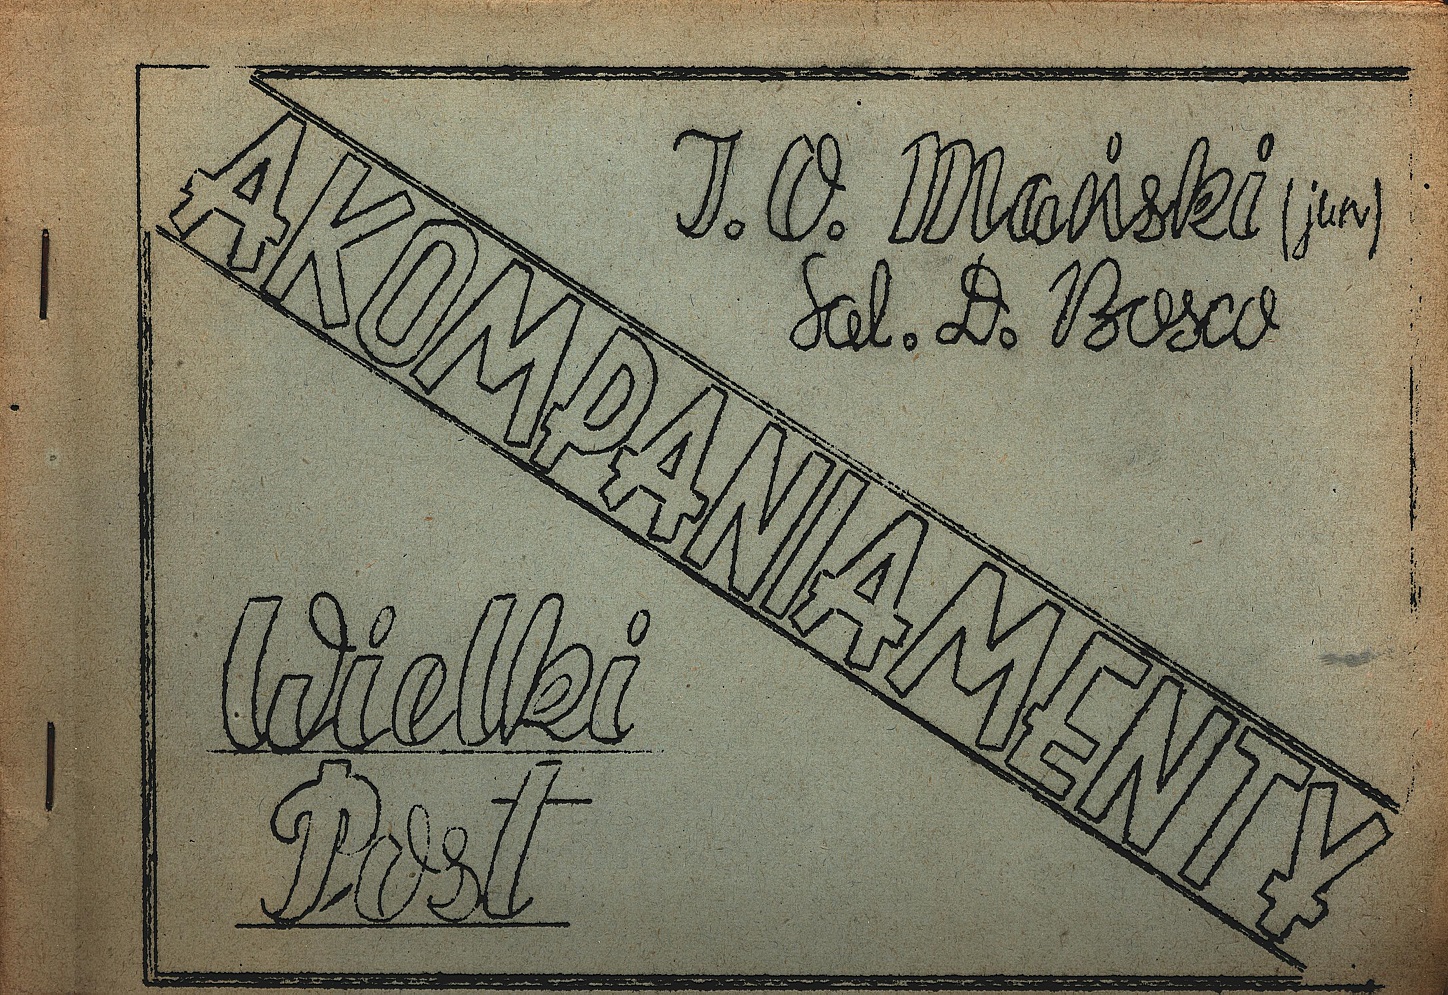 J. O. Mański (jun)
Sal. D. Bosco
AKOMPANIAMENTY
Wielki
Post